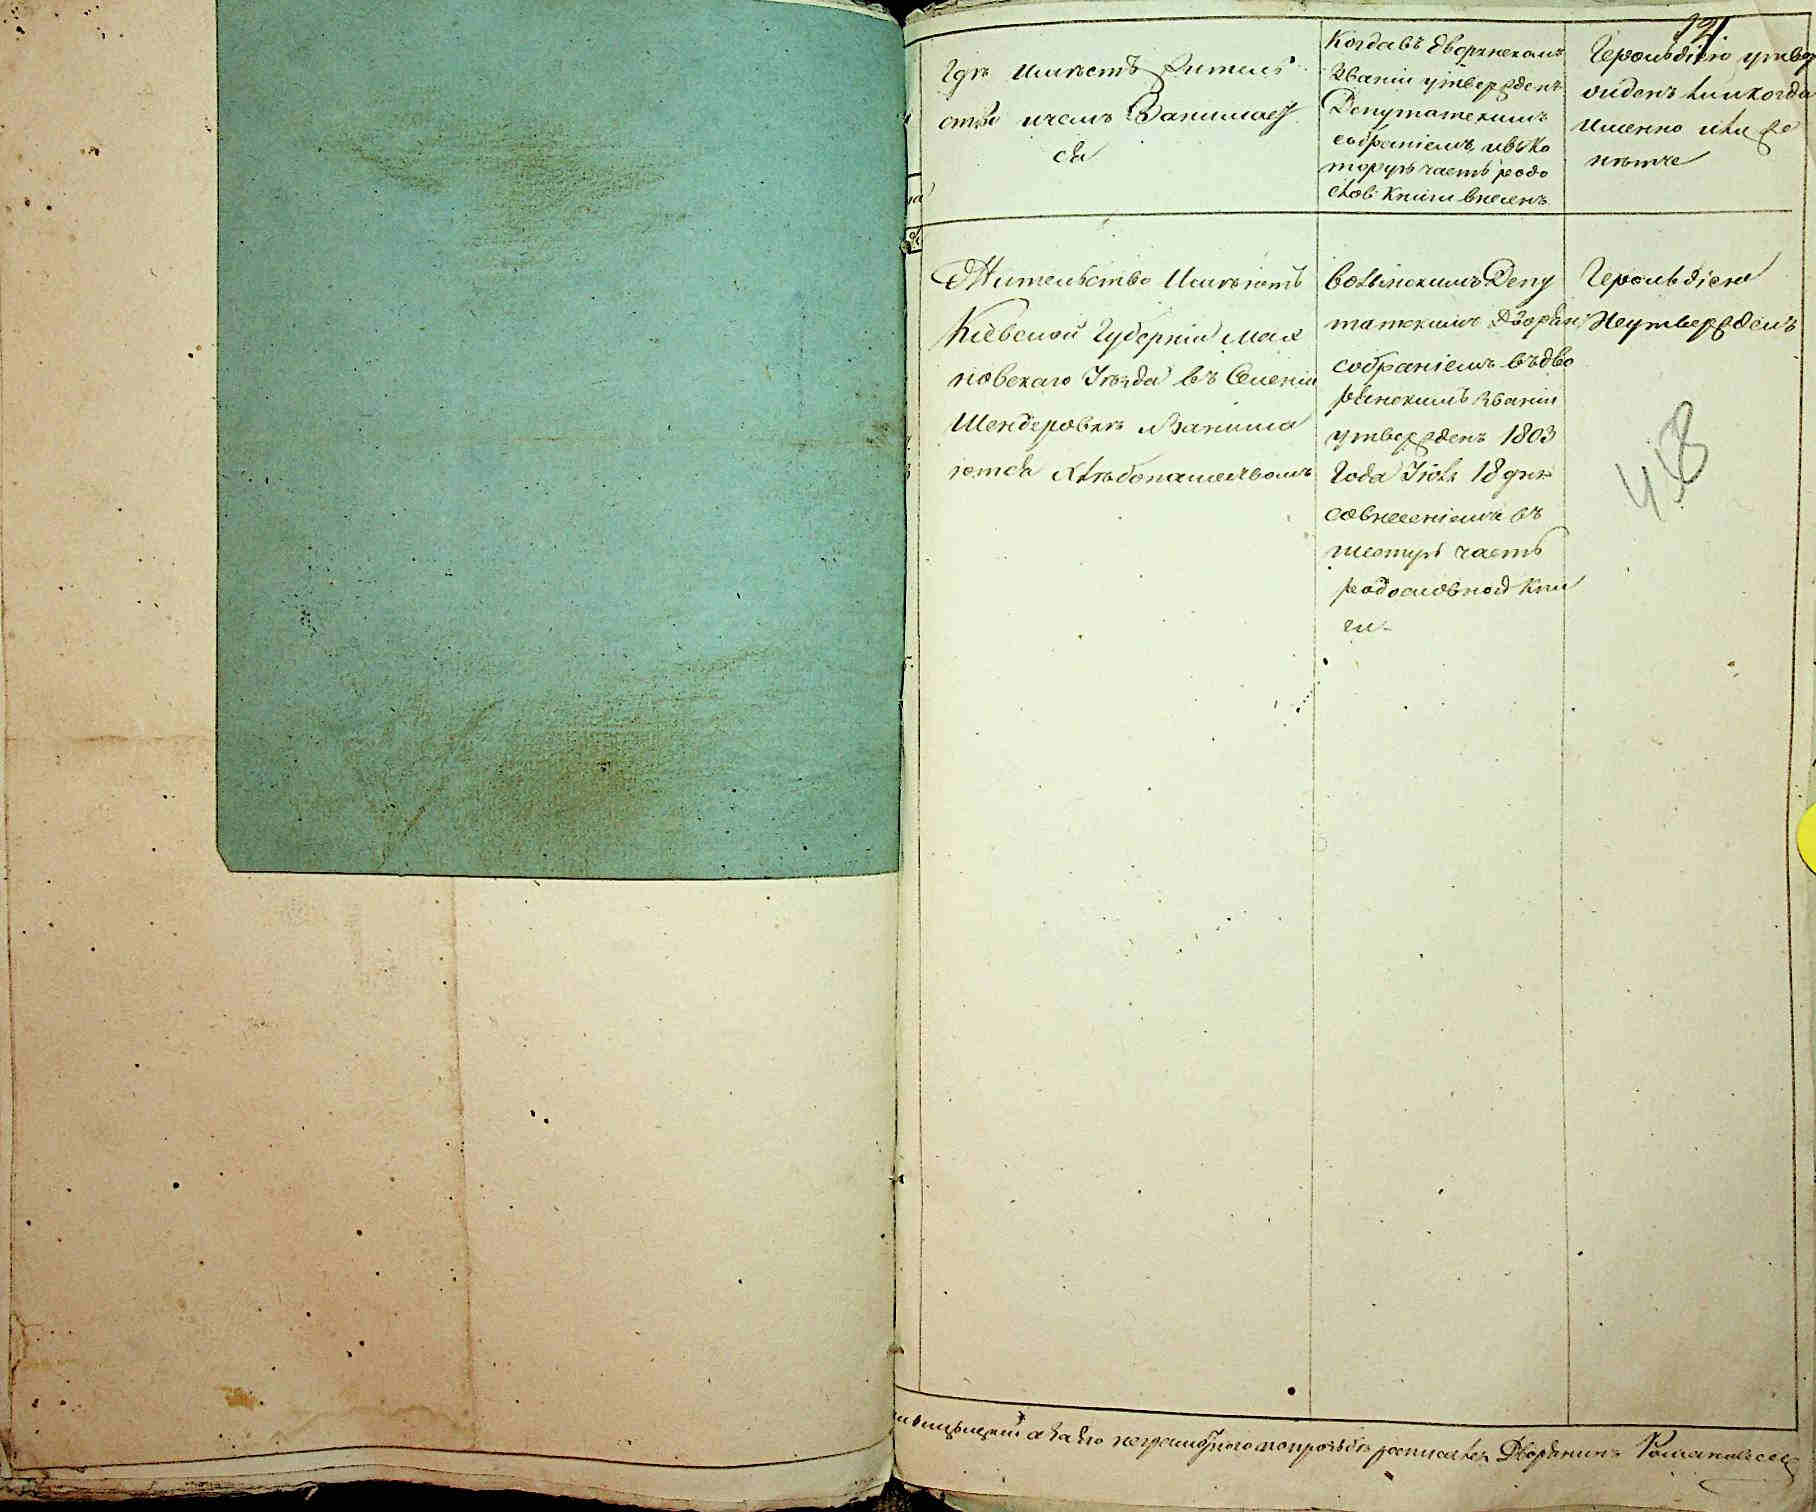 121
Гдѣ имѣетъ жительс
тво и чемъ Занимает
ся
Когда въ дворянскомъ
Званіи утвержденъ
Депутатскимъ
собраніемъ, и въ ко
торую часть родо
слов: Книги внесенъ
Герольдіею утвер
жденъ ли и когда
именно или еще
Жительство Имѣютъ
Кіевской Губерніи Мах
новскаго Уѣзда въ Селеніи
Шендеровкѣ Занима
ются хлѣбопашествомъ
Волынскимъ Депу
татскимъ Дворян:
собраніемъ въ дво
рянскимъ Званіи
утвержденъ 1803
Года Іюль 18 дня
со внесеніемъ въ
шестую часть
родословной Кни
ги.
Герольдіею
Неутвержденъ
48
а за его неграмотного попрозьбѣ росписался Дворянинъ